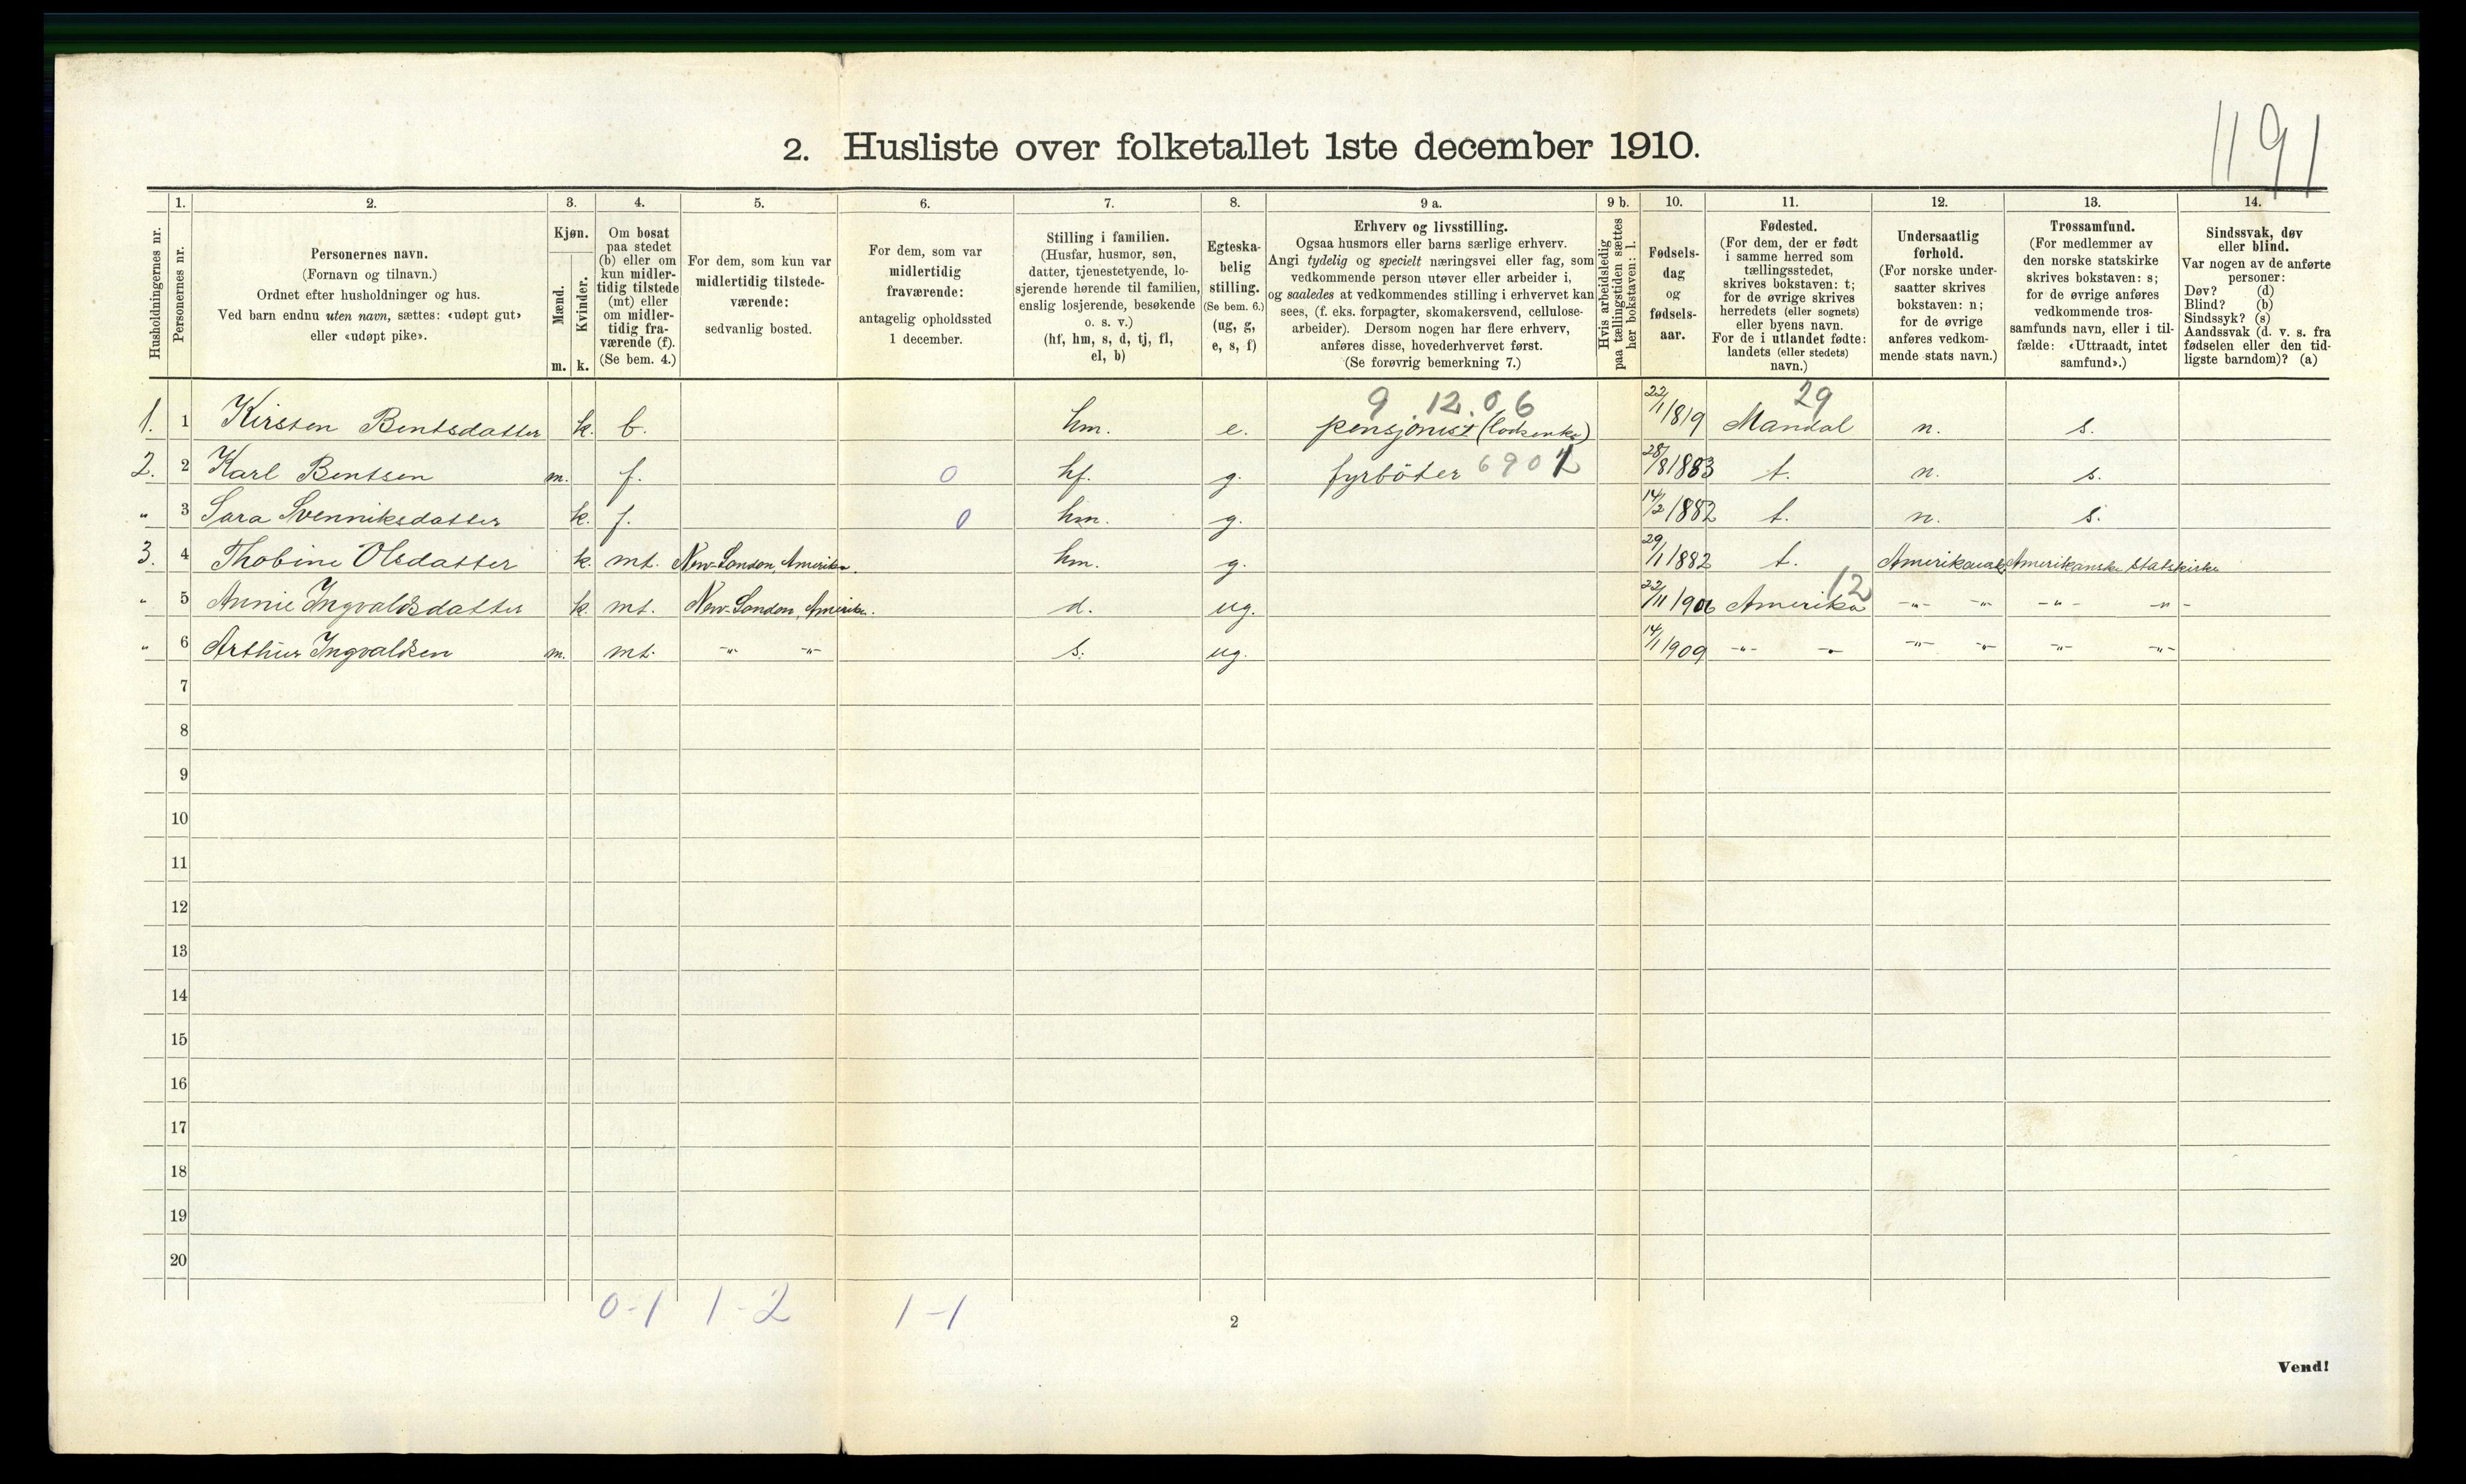 1191
2. Husliste over folketallet 1ste december 1910.
Husholdningernes nr.
1.
Personernes nr.
2.
Personernes navn.
(Fornavn og tilnavn.)
Ordnet efter husholdninger og hus.
Ved barn endnu uten navn, sættes: «udøpt gut»
eller «udøpt pike».
3.
Kjøn.
Mænd.
Kvinder.
m. k.
4.
Om bosat
paa stedet
(b) eller om
kun midler-
tidig tilstede
(mt) eller
om midler-
tidig fra-
værende (f).
(Se bem. 4.)
5.
For dem, som kun var
midlertidig tilstede-
værende:
sedvanlig bosted.
6.
For dem, som var
midlertidig
fraværende:
antagelig opholdssted
1 december.
7.
Stilling i familien.
(Husfar, husmor, søn,
datter, tjenestetyende, lo-
sjerende hørende til familien,
enslig losjerende, besøkende
o. s. v.)
(hf, hm, s, d, tj, fl,
el, b)
8.
Egteska-
belig
stilling.
(Se bem. 6.)
(ug, g,
e, s, f)
9 a.
Erhverv og livsstilling.
Ogsaa husmors eller barns særlige erhverv.
Angi tydelig og specielt næringsvei eller fag, som
vedkommende person utøver eller arbeider i,
og saaledes at vedkommendes stilling i erhvervet kan
sees, (f. eks. forpagter, skomakersvend, cellulose-
arbeider). Dersom nogen har flere erhverv,
anføres disse, hovederhvervet først.
(Se forøvrig bemerkning 7.)
9 b.
Hvis arbeidsledig
paa tællingstiden sættes
her bokstaven: l.
10.
Fødsels-
dag
og
fødsels-
aar.
11.
Fødested.
(For dem, der er født
i samme herred som
tællingsstedet,
skrives bokstaven: t;
for de øvrige skrives
herredets (eller sognets)
eller byens navn.
For de i utlandet fødte:
landets (eller stedets)
navn.)
12.
Undersaatlig
forhold.
(For norske under-
saatter skrives
bokstaven: n;
for de øvrige
anføres vedkom-
mende stats navn.)
13.
Trossamfund.
(For medlemmer av
den norske statskirke
skrives bokstaven: s;
for de øvrige anføres
vedkommende tros-
samfunds navn, eller i til-
fælde: «Uttraadt, intet
samfund».)
14.
Sindssvak, døv
eller blind.
Var nogen av de anførte
personer:
Døv? (d)
Blind? (b)
Sindssyk? (s)
Aandssvak (d. v. s. fra
fødselen eller den tid-
ligste barndom)? (a)
9 . 12. 06 29
1. 1 Kirsten Bentsdatter k. b. hm. e. pensjonist (Lodsenke) 22/1 1819 Mandal n. s.
2. 2 Karl Bentsen m. f. 0 hf. g. fyrböter 690 28/8 1883 t. n. s.
" 3 Sara Svenniksdatter k. f. 0 hm. g. 14/2 1882 t. n. s.
3. 4 Thobine Olsdatter k. mt. New-London, Amerika. hm. g. 29/1 1882 t. Amerikansk Amerikanske statskirke
" 5 Annie Ingvaldsdatter k. mt. New-London, Amerika. d. ug. 22/11 1906 Amerika 12 -"- -"- -"- -"-
" 6 Arthur Ingvaldsen m. mt. -"- -"- s. ug. 14/1 1909 -"- -"- -"- -"- -"- -"-
7
8
9
10
11
12
13
14
15
16
17
18
19
20
0-1 1-2 1-1
2
Vend!